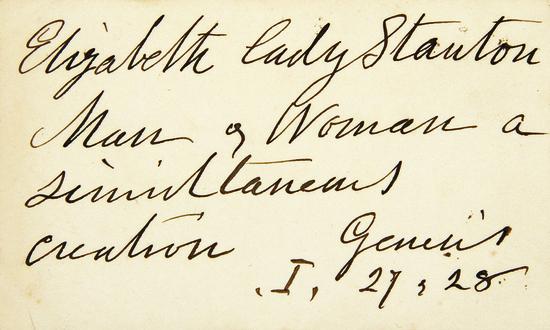 Elizabeth Cady Stanton
Man & Woman a
simultaneous
creation Genesis
I, 27, 28